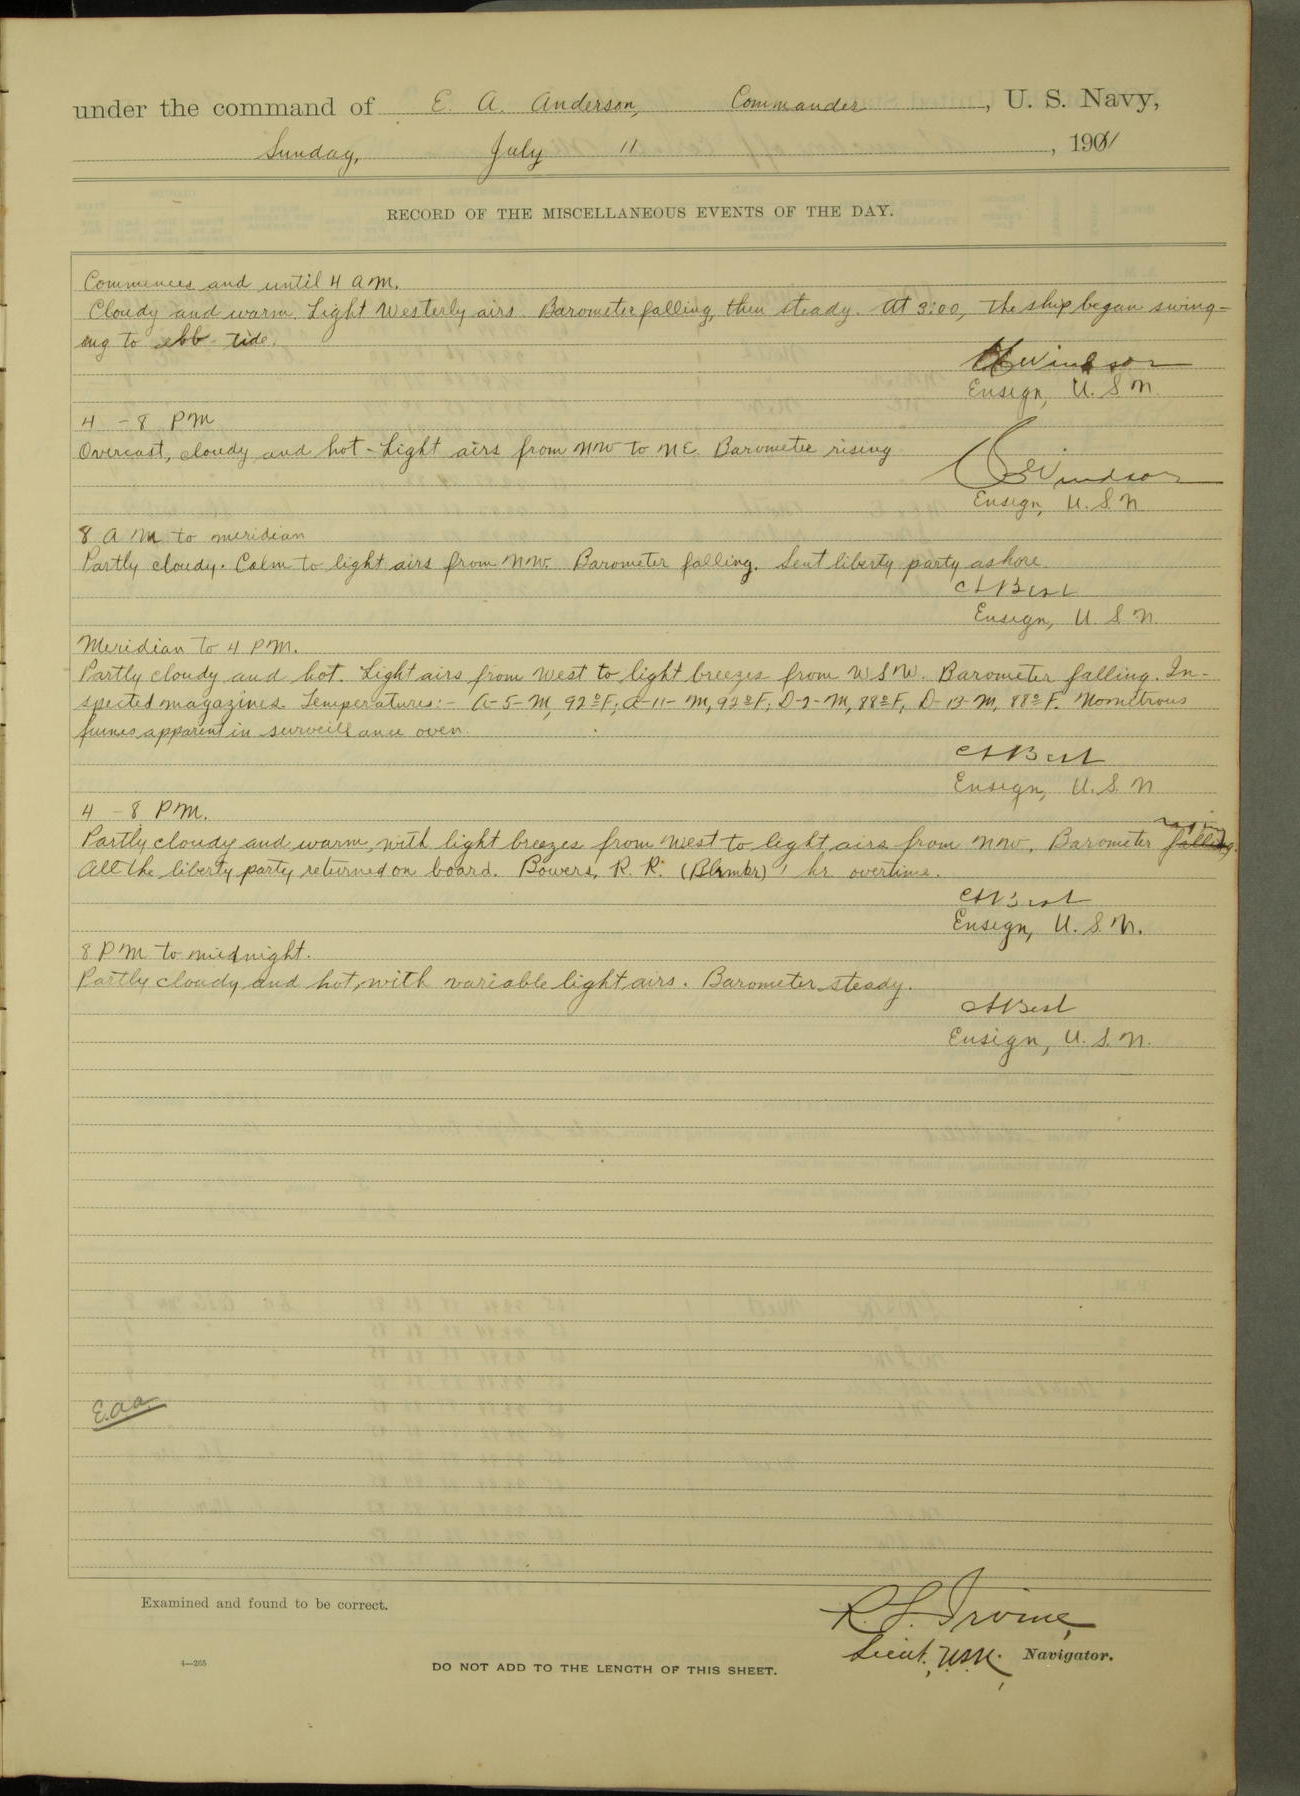 under the command of E. A. Anderson, Commander, U. S. Navy,
Sunday, July 11, 190
RECORD OF THE MISCELLANEOUS EVENTS OF THE DAY.
Commences and until 4 a m.
Cloudy and warm. Light Westerly airs. Barometer falling, then steady. At 3:00, the ship began swing-
ing to ebb tide.
Windsor
Ensign, U. S N.
4 - 8 P M
Overcast, cloudy and hot - Light airs from NW to NE. Barometer rising
Windsor
Ensign, U. S. N
8 A M to meridian
Partly cloudy. Calm to light airs from NNW. Barometer falling. Sent liberty party ashore.
Best
Ensign, U. S. N.
Meridian to 4 P M.
Partly cloudy and hot. Light airs from West to light breezes from WSW. Barometer falling. In-
spected magazines. Temperatures:- A-5-M, 92°F; A-11-M, 92°F; D-2-M, 88°F, D-13-M, 88°F. No nitrous
fumes apparent in surveillance oven.
Best
Ensign, U. S. N
4 - 8 P M.
rising
Partly cloudy and warm, with light breezes from West to light airs from NNW. Barometer falling.
All the liberty party returned on board. Bowers, R. R. 1 hr overtime.
Best
Ensign, U. S. N.
8 P M to midnight.
Partly cloudy and hot, with variable light airs. Barometer steady.
Best
Ensign, U. S. N.
E.a.a.
Examined and found to be correct.
R. S. Irvine,
Lieut., U.S.N., Navigator.
4—265
DO NOT ADD TO THE LENGTH OF THIS SHEET.